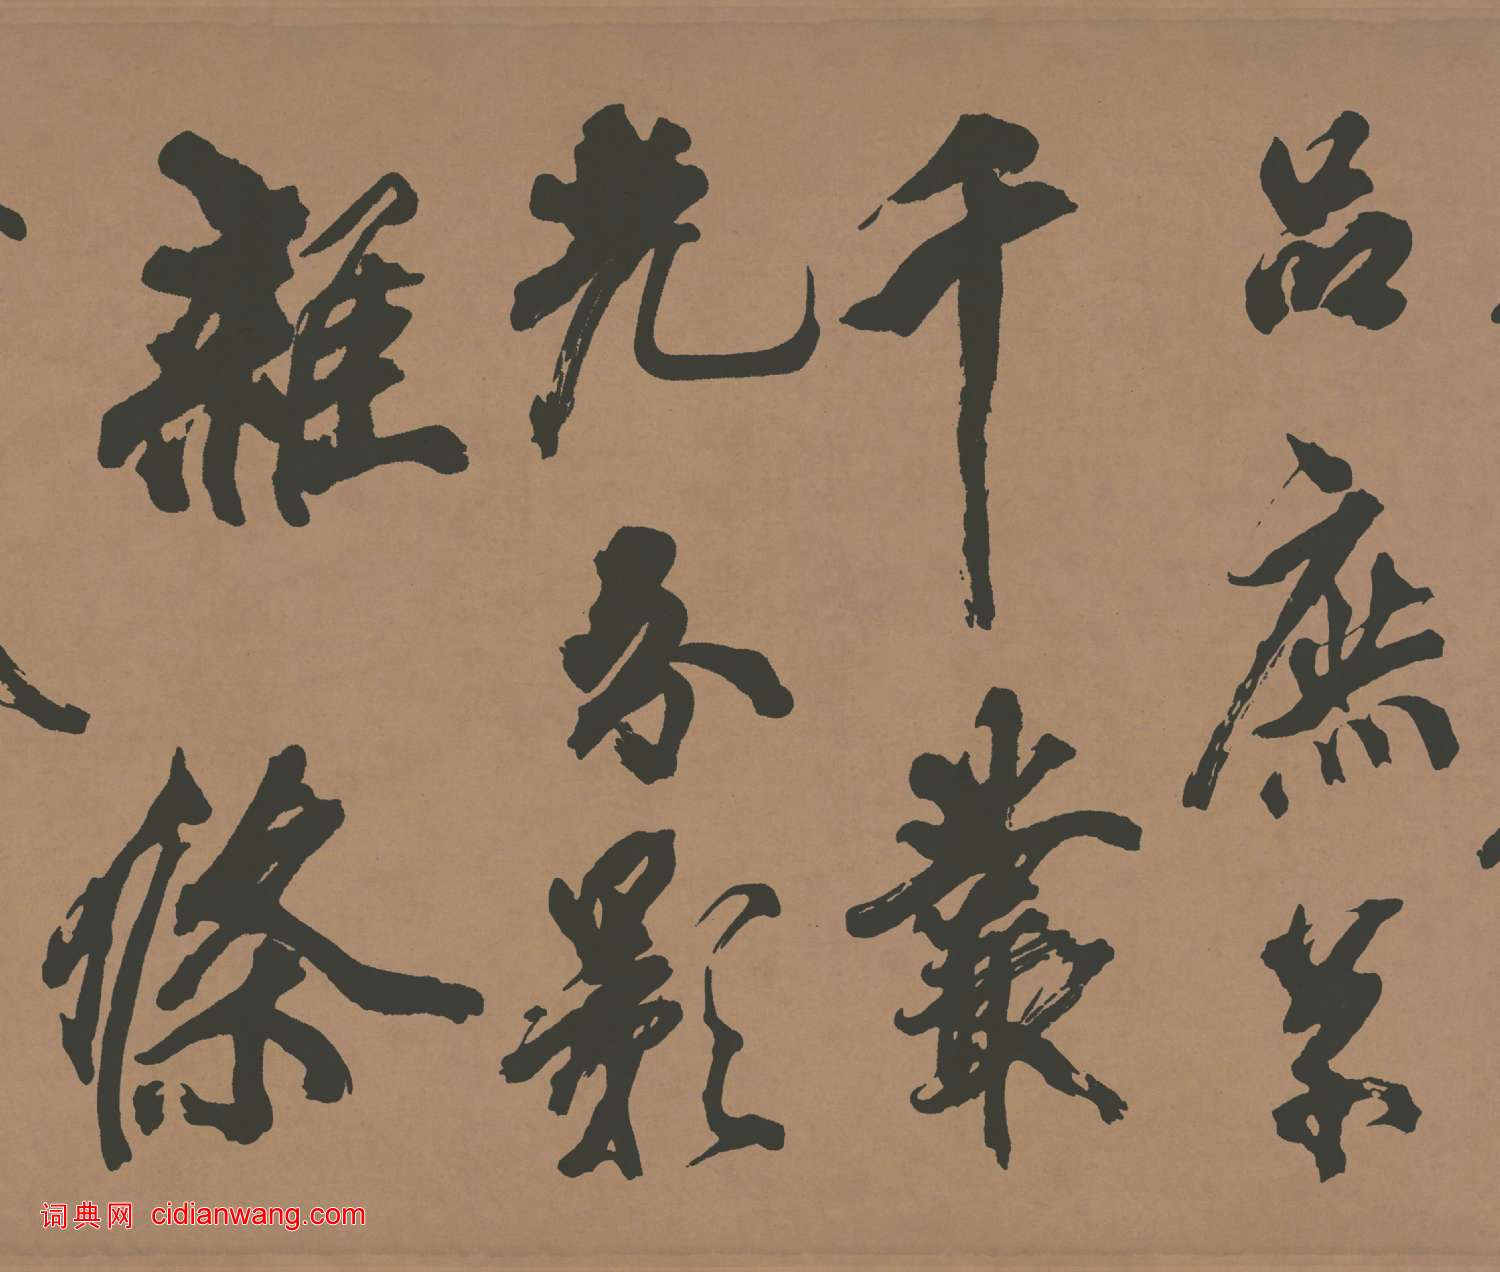 品庶草
千叢
光分影
雜條
词典网 cidianwang.com